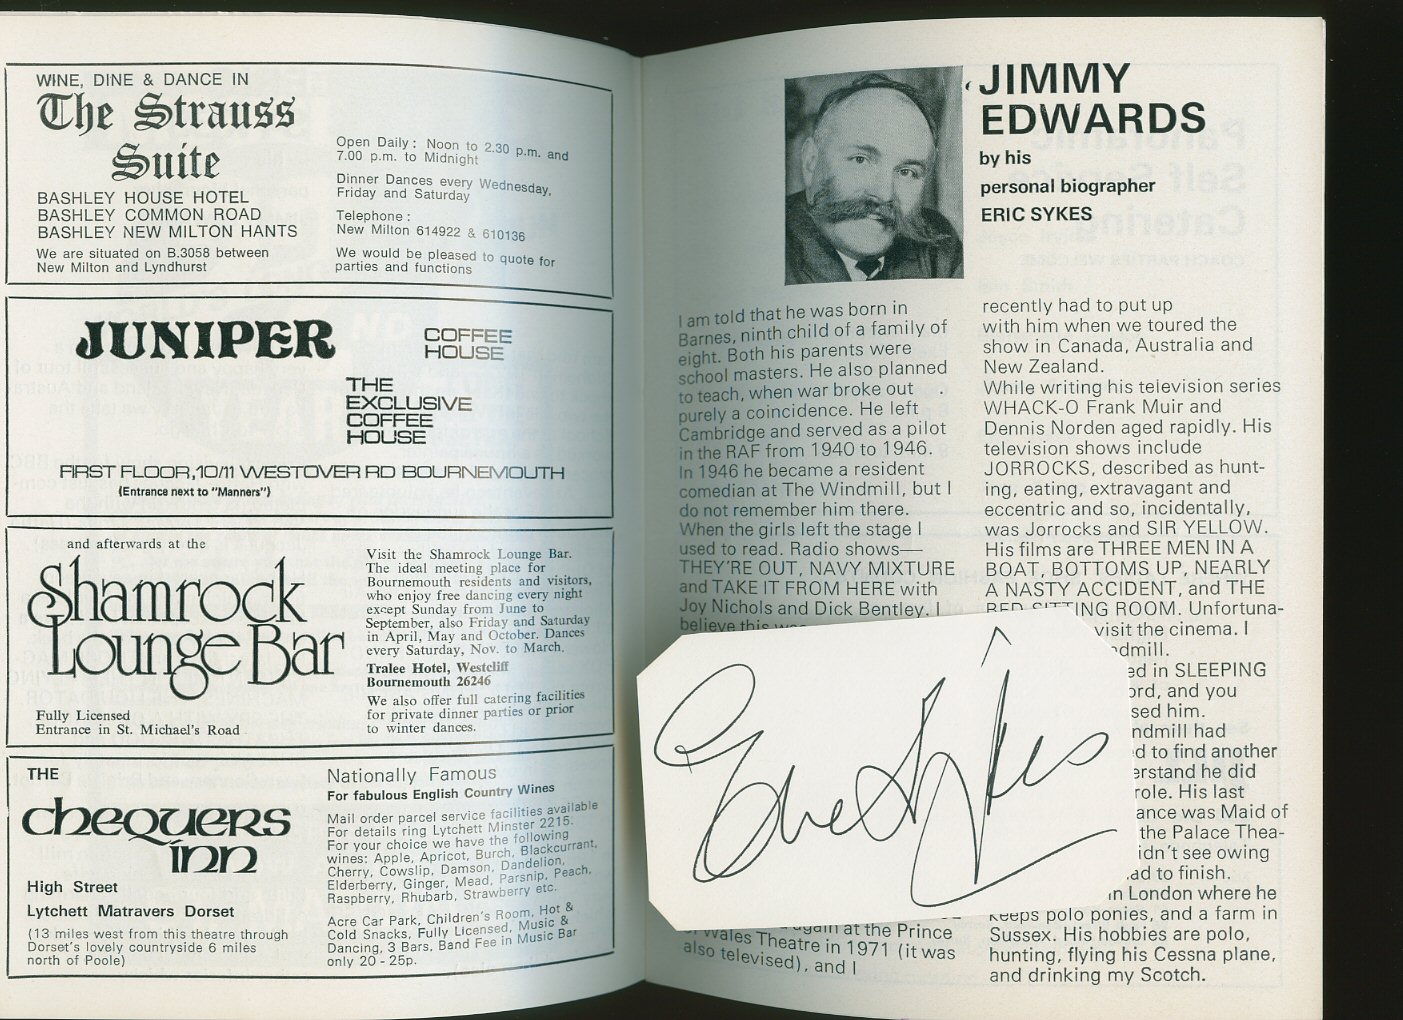 WINE, DINE & DANCE IN
The Strauss
Suite
BASHLEY HOUSE HOTEL
BASHLEY COMMON ROAD
BASHLEY NEW MILTON HANTS
We are situated on B.3058 between
New Milton and Lyndhurst
Open Daily : Noon to 2.30 p.m. and
7.00 p.m. to Midnight
Dinner Dances every Wednesday,
Friday and Saturday
Telephone :
New Milton 614922 & 610136
We would be pleased to quote for
parties and functions
JUNIPER
COFFEE
HOUSE
THE
EXCLUSIVE
COFFEE
HOUSE
FIRST FLOOR, 10/11 WESTOVER RD BOURNEMOUTH
(Entrance next to "Manners")
and afterwards at the
Shamrock
Lounge Bar
Fully Licensed
Entrance in St. Michael's Road
Visit the Shamrock Lounge Bar.
The ideal meeting place for
Bournemouth residents and visitors,
who enjoy free dancing every night
except Sunday from June to
September, also Friday and Saturday
in April, May and October. Dances
every Saturday, Nov. to March.
Tralee Hotel, Westcliff
Bournemouth 26246
We also offer full catering facilities
for private dinner parties or prior
to winter dances.
THE
chequers
inn
High Street
Lytchett Matravers Dorset
(13 miles west from this theatre through
Dorset's lovely countryside 6 miles
north of Poole)
Nationally Famous
For fabulous English Country Wines
Mail order parcel service facilities available
For details ring Lytchett Minster 2215.
For your choice we have the following
wines: Apple, Apricot, Burch, Blackcurrant,
Cherry, Cowslip, Damson, Dandelion,
Elderberry, Ginger, Mead, Parsnip, Peach,
Raspberry, Rhubarb, Strawberry etc.
Acre Car Park, Children's Room, Hot &
Cold Snacks, Fully Licensed, Music &
Dancing, 3 Bars, Band Fee in Music Bar
only 20 - 25p.
JIMMY
EDWARDS
by his
personal biographer
ERIC SYKES
I am told that he was born in
Barnes, ninth child of a family of
eight. Both his parents were
school masters. He also planned
to teach, when war broke out
purely a coincidence. He left
Cambridge and served as a pilot
in the RAF from 1940 to 1946.
In 1946 he became a resident
comedian at The Windmill, but I
do not remember him there.
When the girls left the stage I
used to read. Radio shows—
THEY'RE OUT, NAVY MIXTURE
and TAKE IT FROM HERE with
Joy Nichols and Dick Bentley.
believe this
again at the Prince
of Wales Theatre in 1971 (it was
also televised), and I
recently had to put up
with him when we toured the
show in Canada, Australia and
New Zealand.
While writing his television series
WHACK-O Frank Muir and
Dennis Norden aged rapidly. His
television shows include
JORROCKS, described as hunt-
ing, eating, extravagant and
eccentric and so, incidentally,
was Jorrocks and SIR YELLOW.
His films are THREE MEN IN A
BOAT, BOTTOMS UP, NEARLY
A NASTY ACCIDENT, and THE
BED SITTING ROOM. Unfortuna-
visit the cinema. I
ndmill.
ed in SLEEPING
ord, and you
sed him.
ndmill had
ed to find another
erstand he did
role. His last
ance was Maid of
the Palace Thea-
idn't see owing
ad to finish.
in London where he
keeps polo ponies, and a farm in
Sussex. His hobbies are polo,
hunting, flying his Cessna plane,
and drinking my Scotch.
Eric Sykes